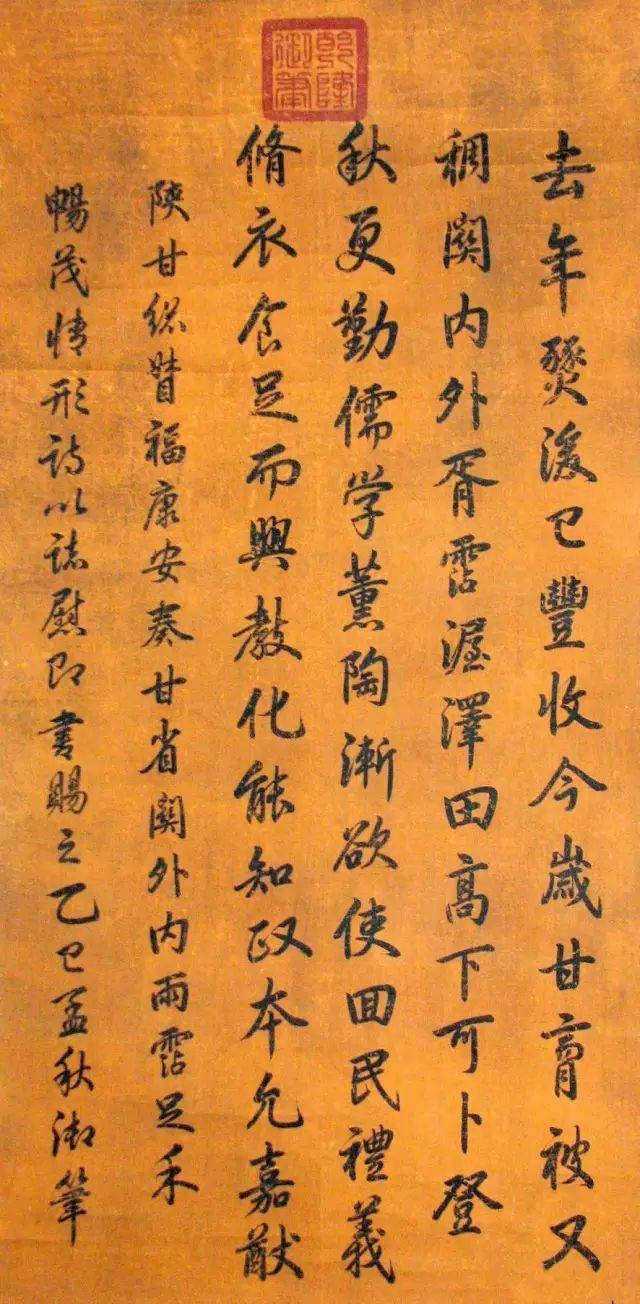 乾隆御筆
去年燹後已豐收今歲甘膏被又
稠關内外胥霑渥澤田高下可卜登
秋更勤儒学薰陶漸欲使回民禮義
脩衣食足而興教化能知政本允嘉猷
陝甘總督福康安奏甘省關外内雨霑足禾
暢茂情形詩以誌慰即書賜之乙巳孟秋御筆